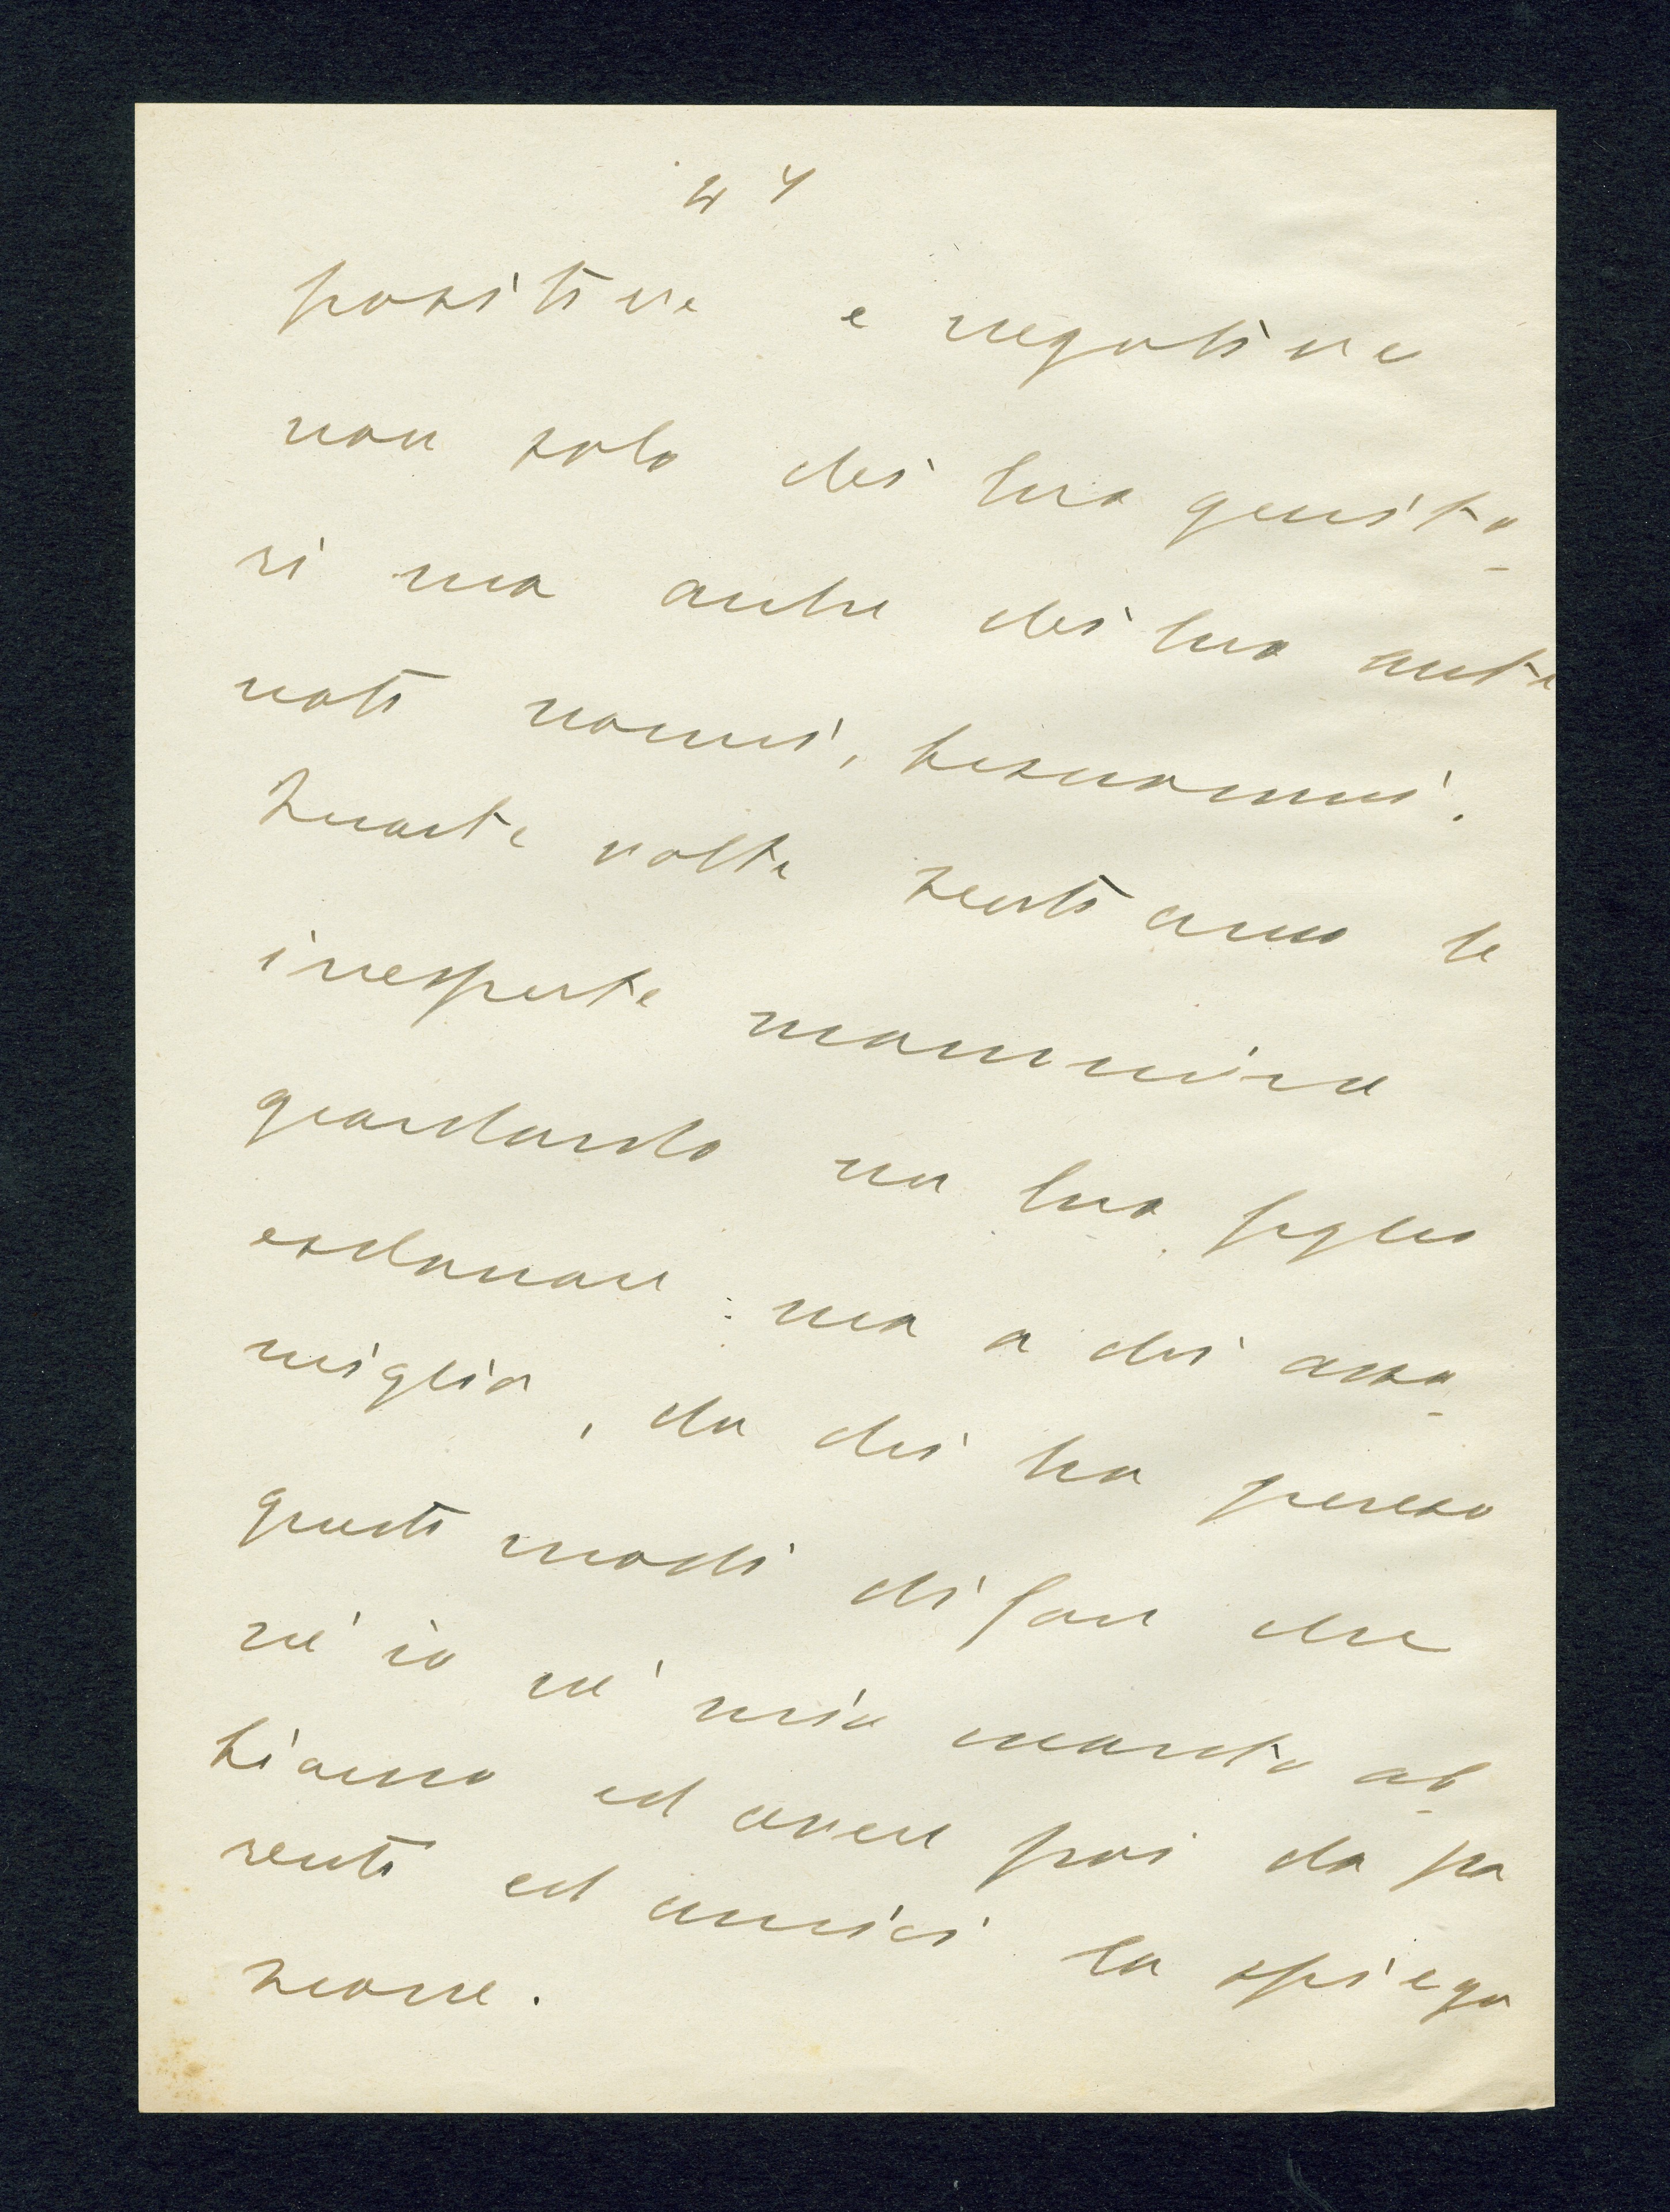 24
positive e negative
non solo dei loro genito-
ri ma anche dei loro ante
nati nonni, bisnonni.
Quante volte sentiamo le
inesperte mammine
guardando un loro figlio
esclamare: ma a chi asso-
miglia, da chi ha preso
questi modi di fare che
né io né mio marito ab-
biamo ed avere poi da pa
renti ed amici la spiega
zione.